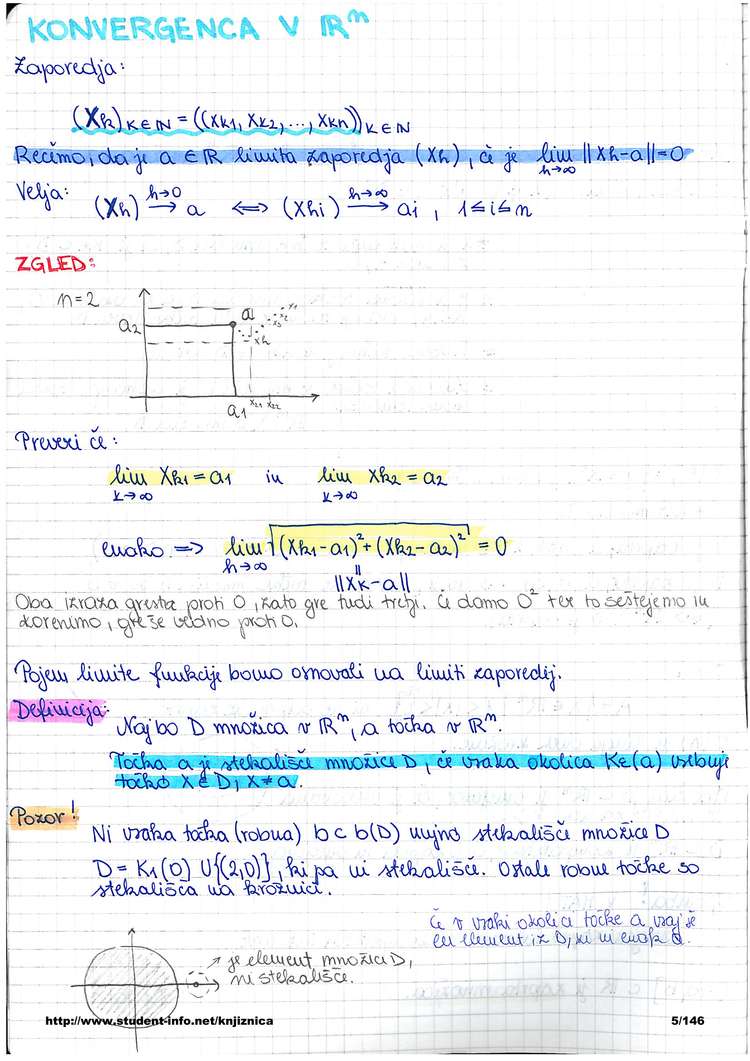 KONVERGENCA V ℝⁿ
Zaporedja:
(Xk)K∈ℕ = ((xk1, xk2, ..., xkn))K∈ℕ
Recimo, da je a ∈ ℝ limita zaporedja (xk), če je lim h→∞ ||xh-a||=0
Velja: (Xh) h→0 → a ⟺ (xhi) h→∞ → ai, 1≤i≤n
ZGLED:
n=2
a2 a x1 x2 x3
xk
a1 x21 x22
Preveri če:
lim K→∞ xk1 = a1 in lim K→∞ xk2 = a2
enako ⇒ lim h→∞ √((xk1-a1)²+(xk2-a2)²) = 0
||
||xk-a||
Oba izraza gresta proti 0, zato gre tudi tretji. Če damo 0² ter to seštejemo in
korenimo, gre še vedno proti 0.
Pojem limite funkcije bomo osnovali na limiti zaporedij.
Definicija:
Naj bo D množica v ℝⁿ, a točka v ℝⁿ.
Točka a je stekališče množice D, če vsaka okolica Kε(a) vsebuje
točko X∈D, X≠a.
Pozor!
Ni vsaka točka (robna) b⊂b(D) nujno stekališče množice D
D = K1(0) ∪{(2,0)}, ki pa ni stekališče. Ostale robne točke so
stekališča na krožnici.
Če v vsaki okolici točke a vsaj še
en element iz D, ki ni enak a.
je element množice D,
ni stekališče.
http://www.student-info.net/knjiznica 5/146